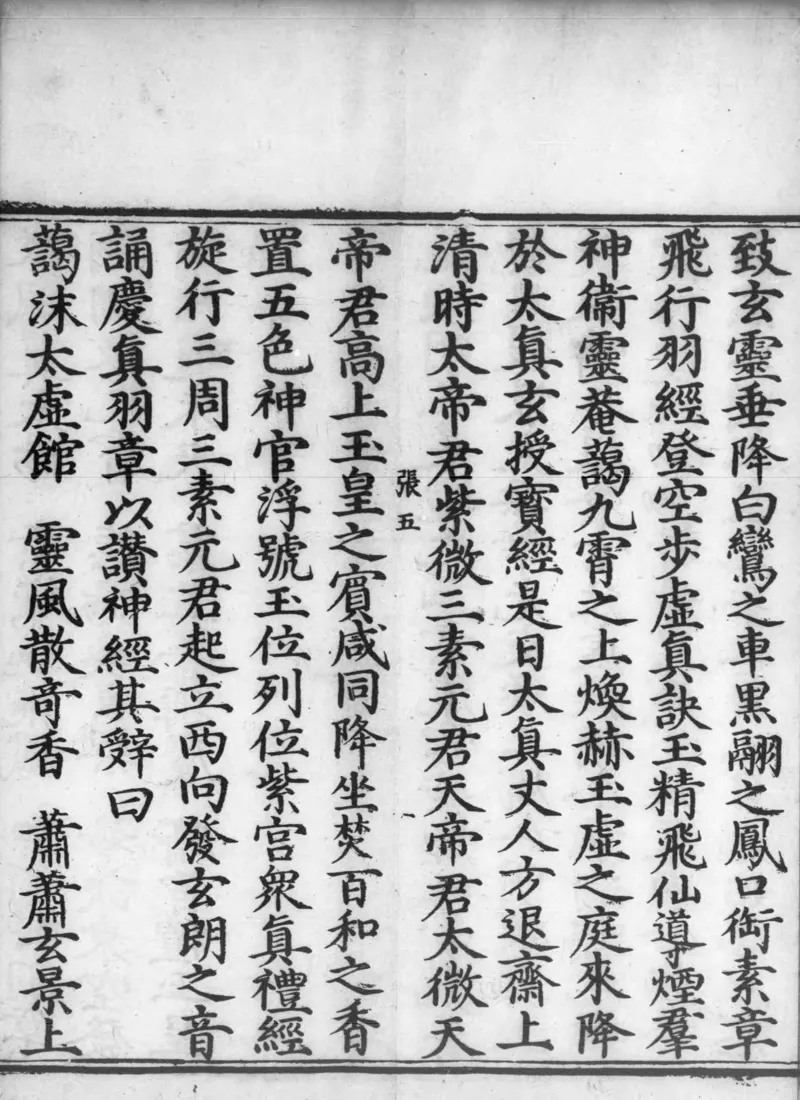 致玄靈垂降白鸞之車黑翮之鳳口銜素章
飛行羽經登空步虛眞訣玉精飛仙導煙羣
神衞靈菴藹九霄之上煥赫玉虛之庭來降
於太眞玄授寶經是日太眞丈人方退齋上
清時太帝君紫微三素元君天帝君太微天
張五
帝君高上玉皇之賓咸同降坐焚百和之香
置五色神官浮號玉位列位紫宮衆眞禮經
旋行三周三素元君起立西向發玄朗之音
誦慶眞羽章以讃神經其辭曰
藹沫太虛館　靈風散奇香　蕭蕭玄景上